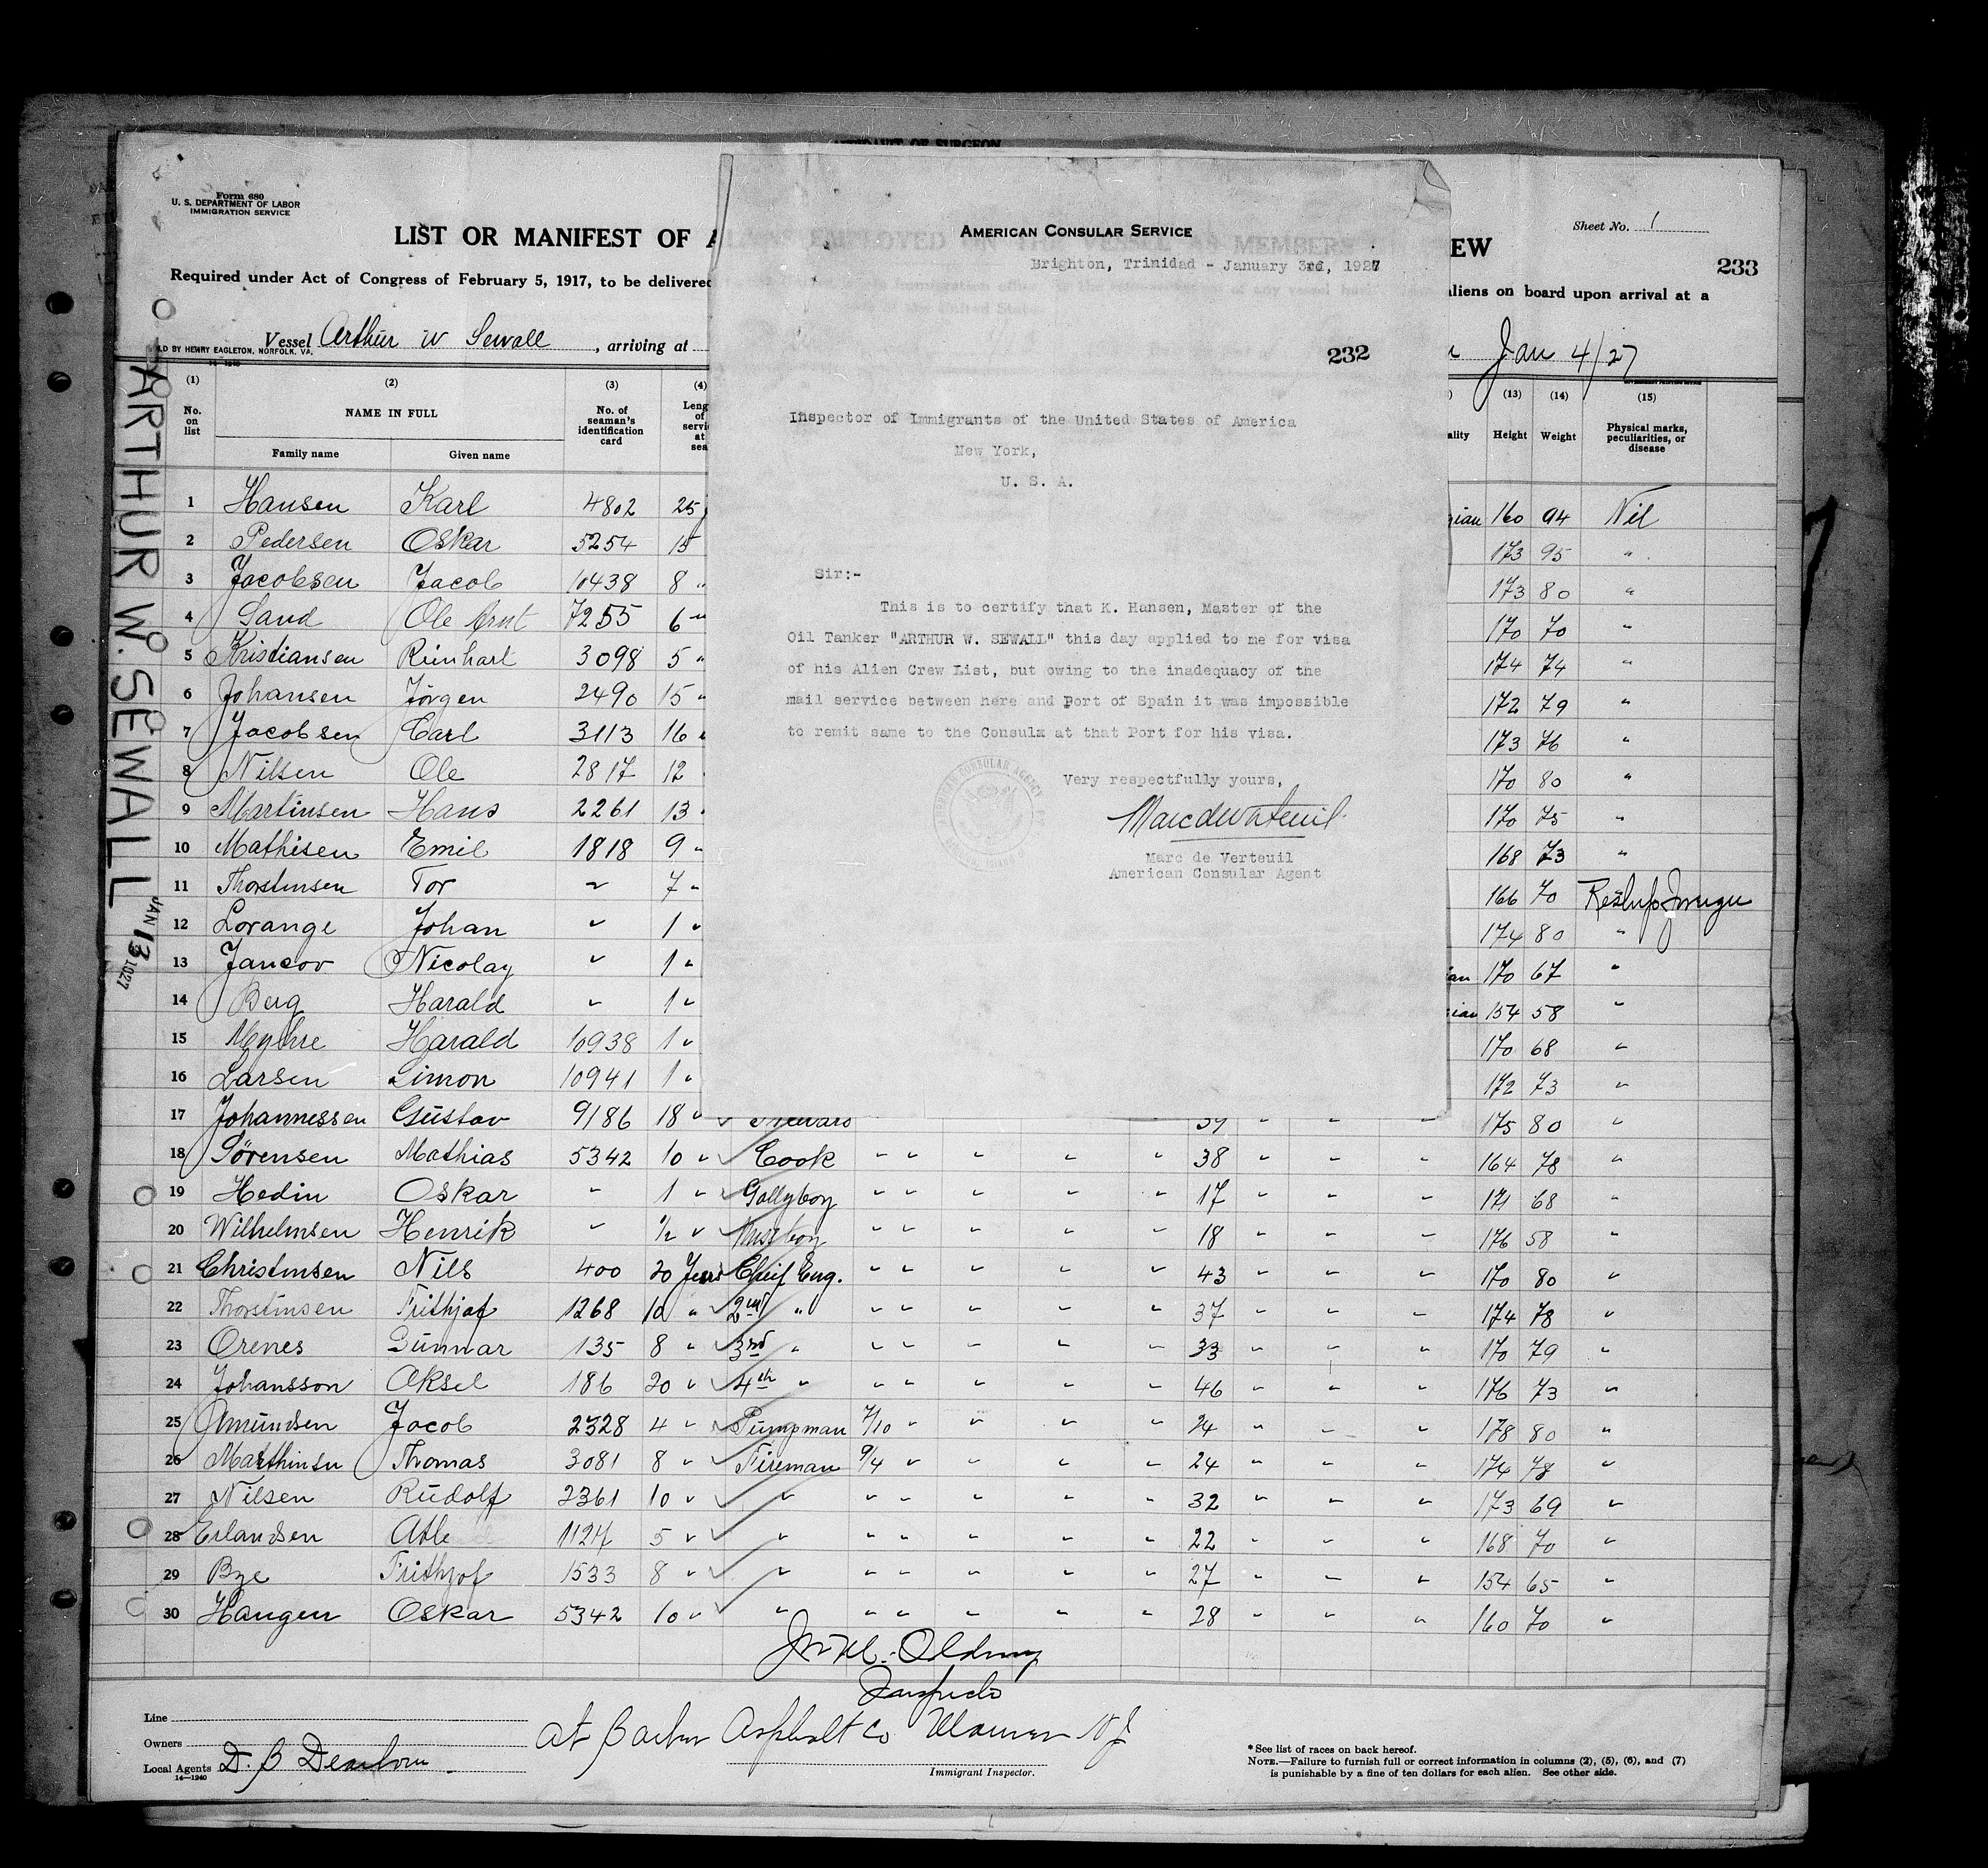 Form 680
U. S. DEPARTMENT OF LABOR
IMMIGRATION SERVICE
LIST OR MANIFEST OF A
EW
Sheet No. 1
233
Required under Act of Congress of February 5, 1917, to be delivered
aliens on board upon arrival at a
Vessel Arthur W Sewall , arriving at
Jan 4/27
LD BY HENRY EAGLETON, NORFOLK, VA.
ARTHUR W. SEWALL
JAN 13 1927
AMERICAN CONSULAR SERVICE
Brighton, Trinidad - January 3rd, 1927
232
Inspector of Immigrants of the United States of America
New York,
U. S. A.
Sir:-
This is to certify that K. Hansen, Master of the
Oil Tanker "ARTHUR W. SEWALL" this day applied to me for visa
of his Alien Crew List, but owing to the inadequacy of the
mail service between here and Port of Spain it was impossible
to remit same to the Consulx at that Port for his visa.
Very respectfully yours,
Marc de Verteuil
American Consular Agent
(1) (2) (3) (4) (13) (14) (15)
No. on list NAME IN FULL No. of seaman's identification card Height Weight Physical marks, peculiarities, or disease
Family name Given name
1 Hansen Karl 4802 25 160 94 Nil
2 Pedersen Oskar 5254 15 173 95 "
3 Jacobsen Jacob 10438 8 " 173 80 "
4 Sand Ole 7255 6 " 170 70 "
5 Kristiansen Reinhart 3098 5 " 174 74 "
6 Johansen Jörgen 2490 15 " 172 79 "
7 Jacobsen Carl 3113 16 " 173 76 "
8 Nilsen Ole 2817 12 170 80 "
9 Martinsen Hans 2261 13 170 75 "
10 Mathisen Emil 1818 9 " 168 73 "
11 Thorstensen Tor " 7 " 166 70
12 Lorange Johan " 1 " 174 80 "
13 Jancov Nicolay " 1 " 170 67 "
14 Berg Harald " 1 " 154 58 "
15 Myhre Harald 10938 1 " 170 68 "
16 Larsen Simon 10941 1 " 172 73 "
17 Johannessen Gustav 9186 18 " 175 80 "
18 Sörensen Mathias 5342 10 " Cook " " " " " 38 " " " 164 78 "
19 Hedin Oskar " 1 " Gallyboy " " " " " 17 " " " 171 68 "
20 Wilhelmsen Henrik " 1/2 " Messboy " " " " " 18 " " " 176 58 "
21 Christensen Nils 400 20 Years Cheif Eng. " " " " " 43 " " " 170 80 "
22 Thorstensen Frithjof 1268 10 " 2nd " " " " " " 37 " " " 174 78 "
23 Orenes Gunnar 135 8 " 3rd " " " " " " 33 " " " 170 79 "
24 Johansson Aksel 186 20 " 4th " " " " " " 46 " " " 176 73 "
25 Amundsen Jacob 2328 4 " Pumpman 7/10 " " " " 24 " " " 178 80 "
26 Marthinsen Thomas 3081 8 " Fireman 9/4 " " " " 24 " " " 174 78 "
27 Nilsen Rudolf 2361 10 " " " " " " " 32 " " " 173 69 "
28 Erlandsen Atle 1127 5 " " " " " " " 22 " " " 168 70 "
29 Bye Frithjof 1533 8 " " " " " " " 27 " " " 154 65 "
30 Haugen Oskar 5342 10 " " " " " " " 28 " " " 160 70 "
Inspector
at Barber Asphalt Co Maurer N J
Line
Owners
Local Agents D. B Dearborn
14—1240
Immigrant Inspector.
* See list of races on back hereof.
NOTE.—Failure to furnish full or correct information in columns (2), (5), (6), and (7)
is punishable by a fine of ten dollars for each alien. See other side.